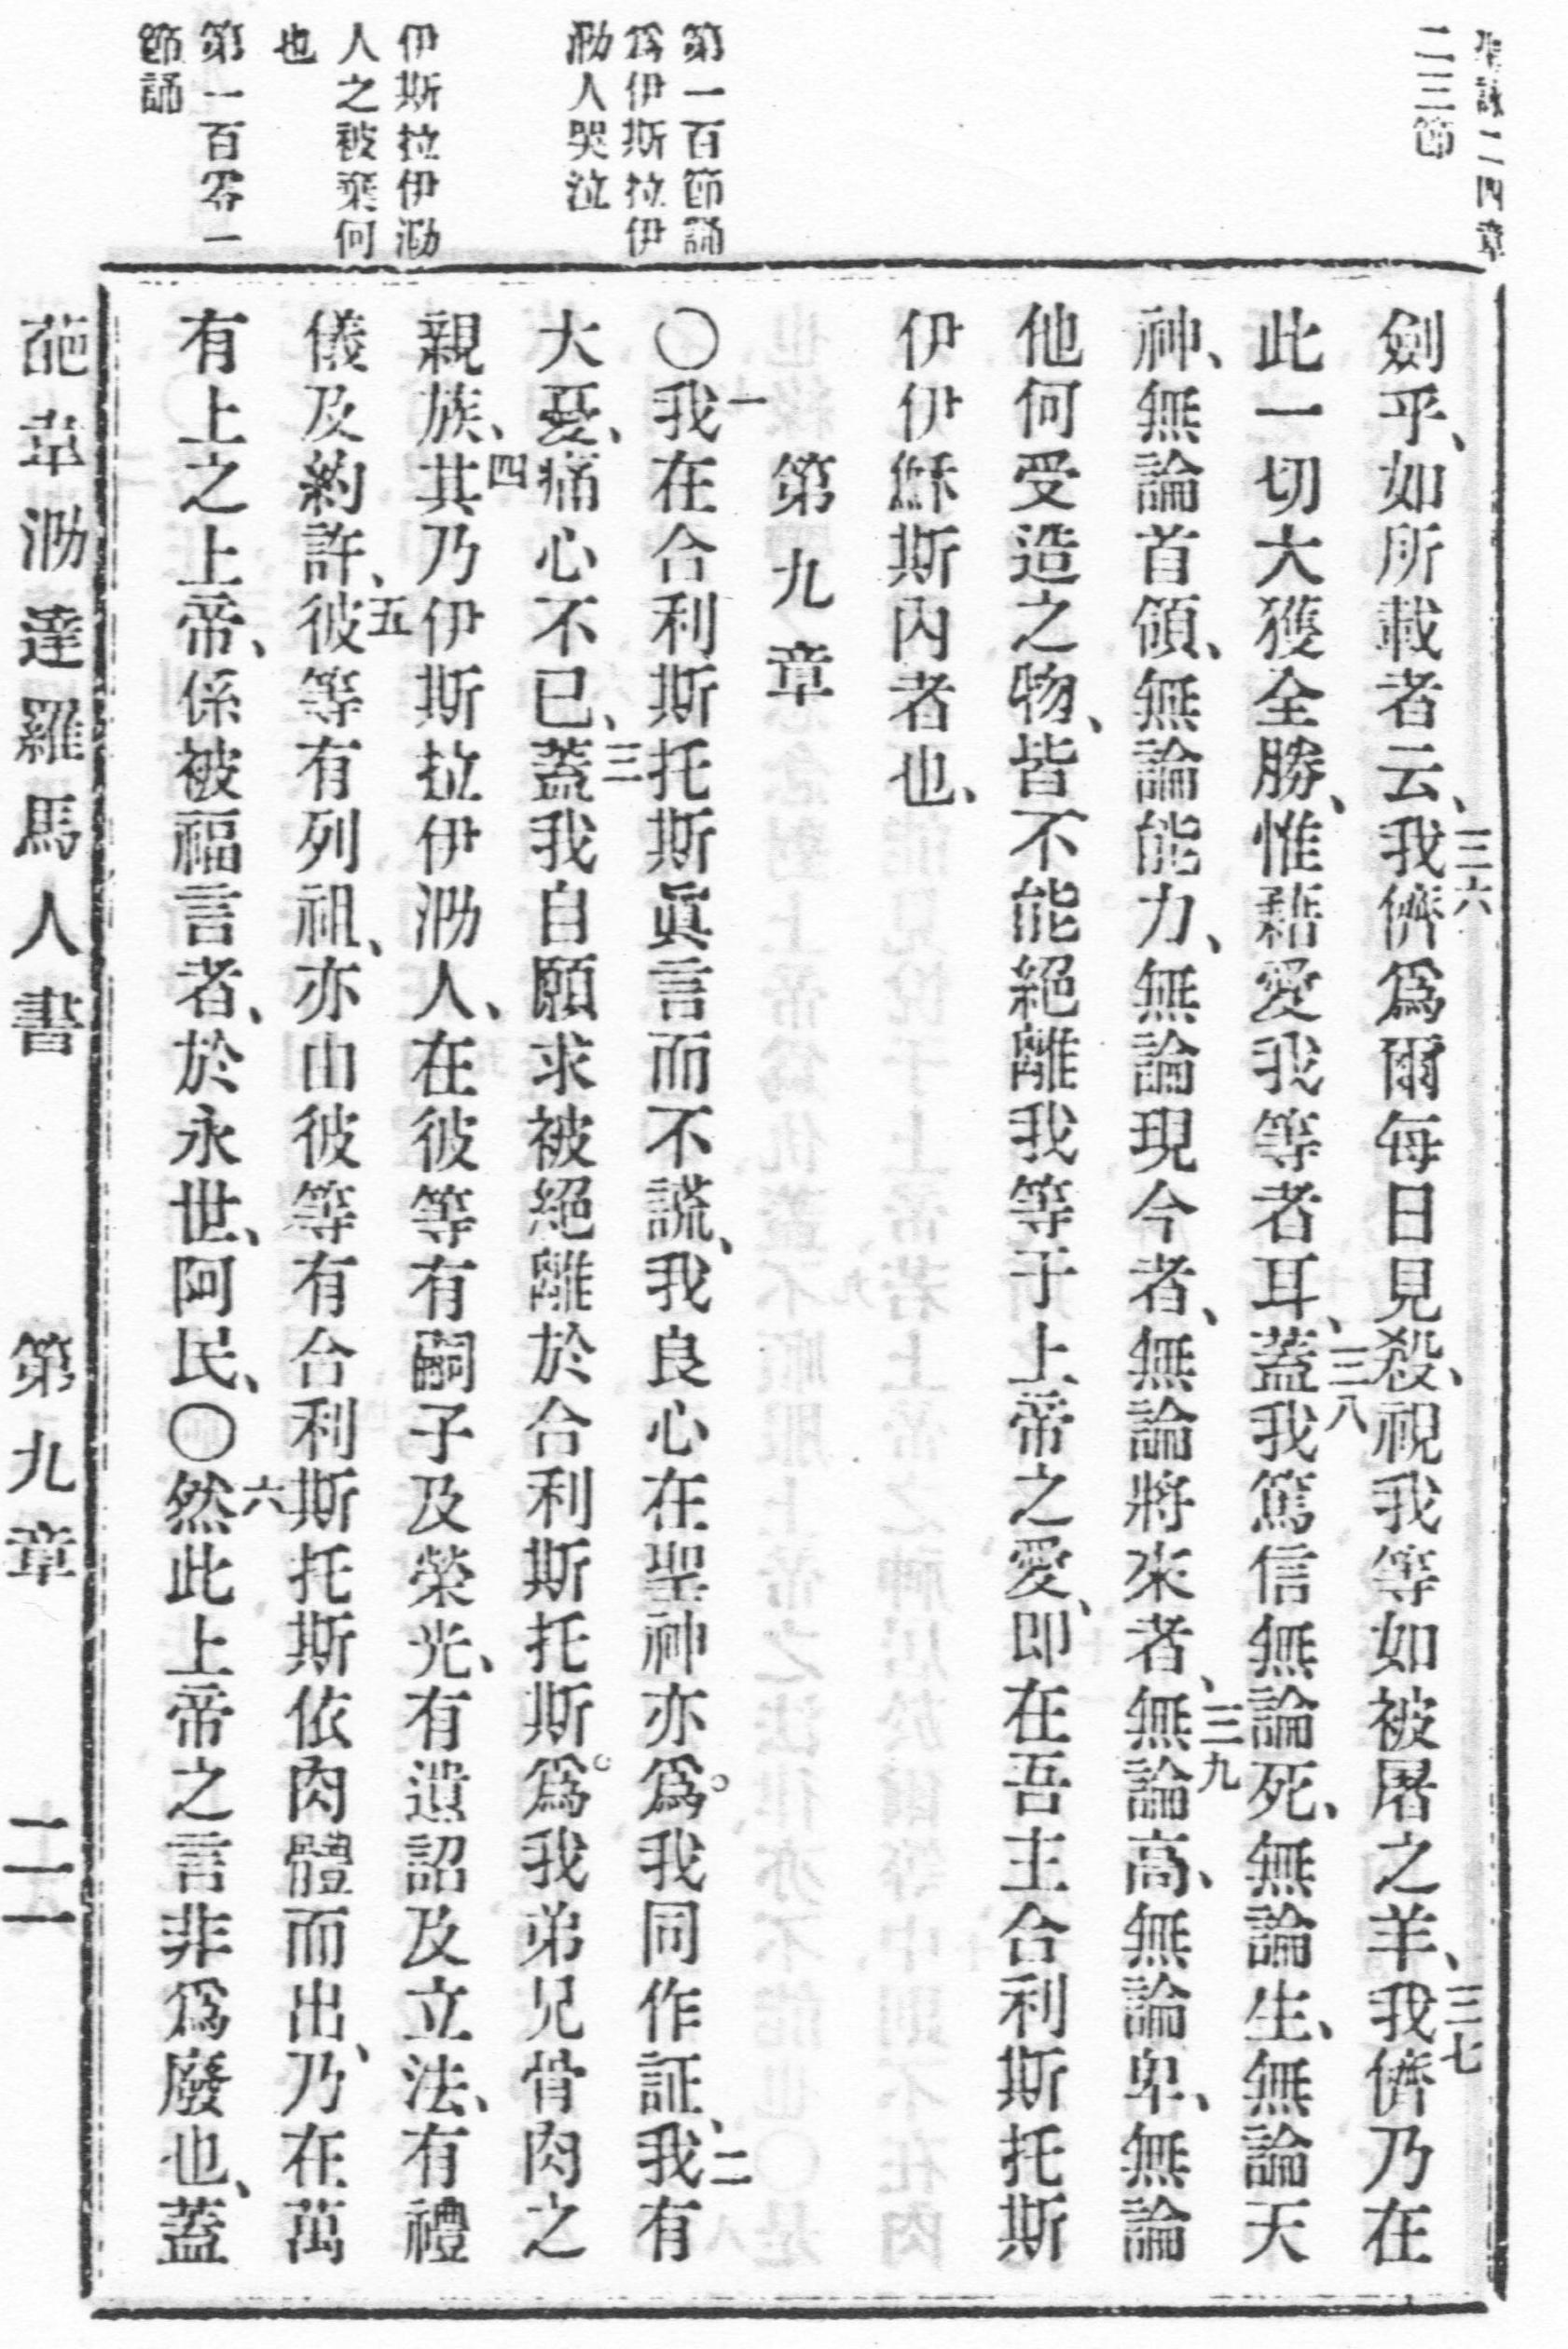 聖詠二四章
二三節
第一百節誦
爲伊斯拉伊
泐人哭泣
伊斯拉伊泐
人之被棄何
也
第一百零一
節誦
劍乎、如所載者云、三六我儕爲爾每日見殺、視我等如被屠之羊、三七我儕乃在
此一切大獲全勝、惟藉愛我等者耳、三八蓋我篤信無論死、無論生、無論天
神、無論首領、無論能力、無論現今者、無論將來者、三九無論高、無論卑、無論
他何受造之物、皆不能絕離我等于上帝之愛、卽在吾主合利斯托斯
伊伊穌斯內者也、
第九章
〇一我在合利斯托斯眞言而不謊、我良心在聖神亦爲。我同作証、二我有
大憂、痛心不已、三蓋我自願求被絕離於合利斯托斯爲。我弟兄骨肉之
親族、四其乃伊斯拉伊泐人、在彼等有嗣子及榮光、有遺詔及立法、有禮
儀及約許、五彼等有列祖、亦由彼等有合利斯托斯依肉體而出、乃在萬
有上之上帝、係被福言者、於永世、阿民、〇六然此上帝之言非爲廢也、蓋
葩韋泐達羅馬人書 第九章 二一